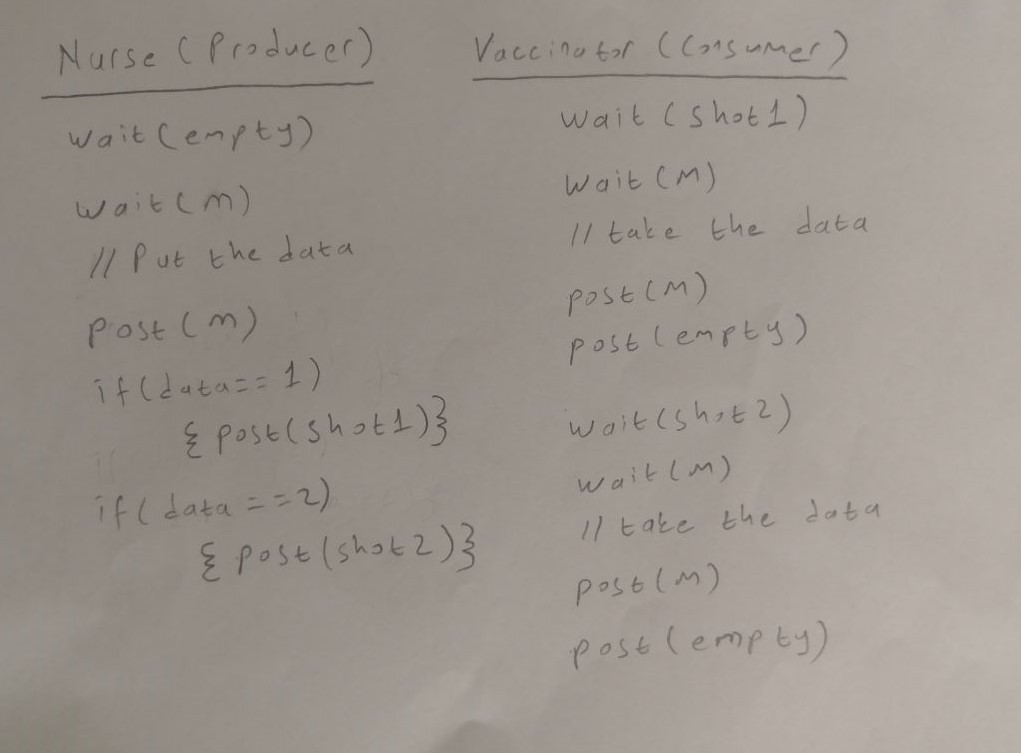 Nurse (Producer)
wait(empty)
wait(m)
// Put the data
post(m)
if(data==1)
{ post(shot1)}
if(data==2)
{ post(shot2)}
Vaccinator (Consumer)
wait(shot1)
wait(M)
// take the data
post(M)
post(empty)
wait(shot2)
wait(M)
// take the data
post(M)
post(empty)